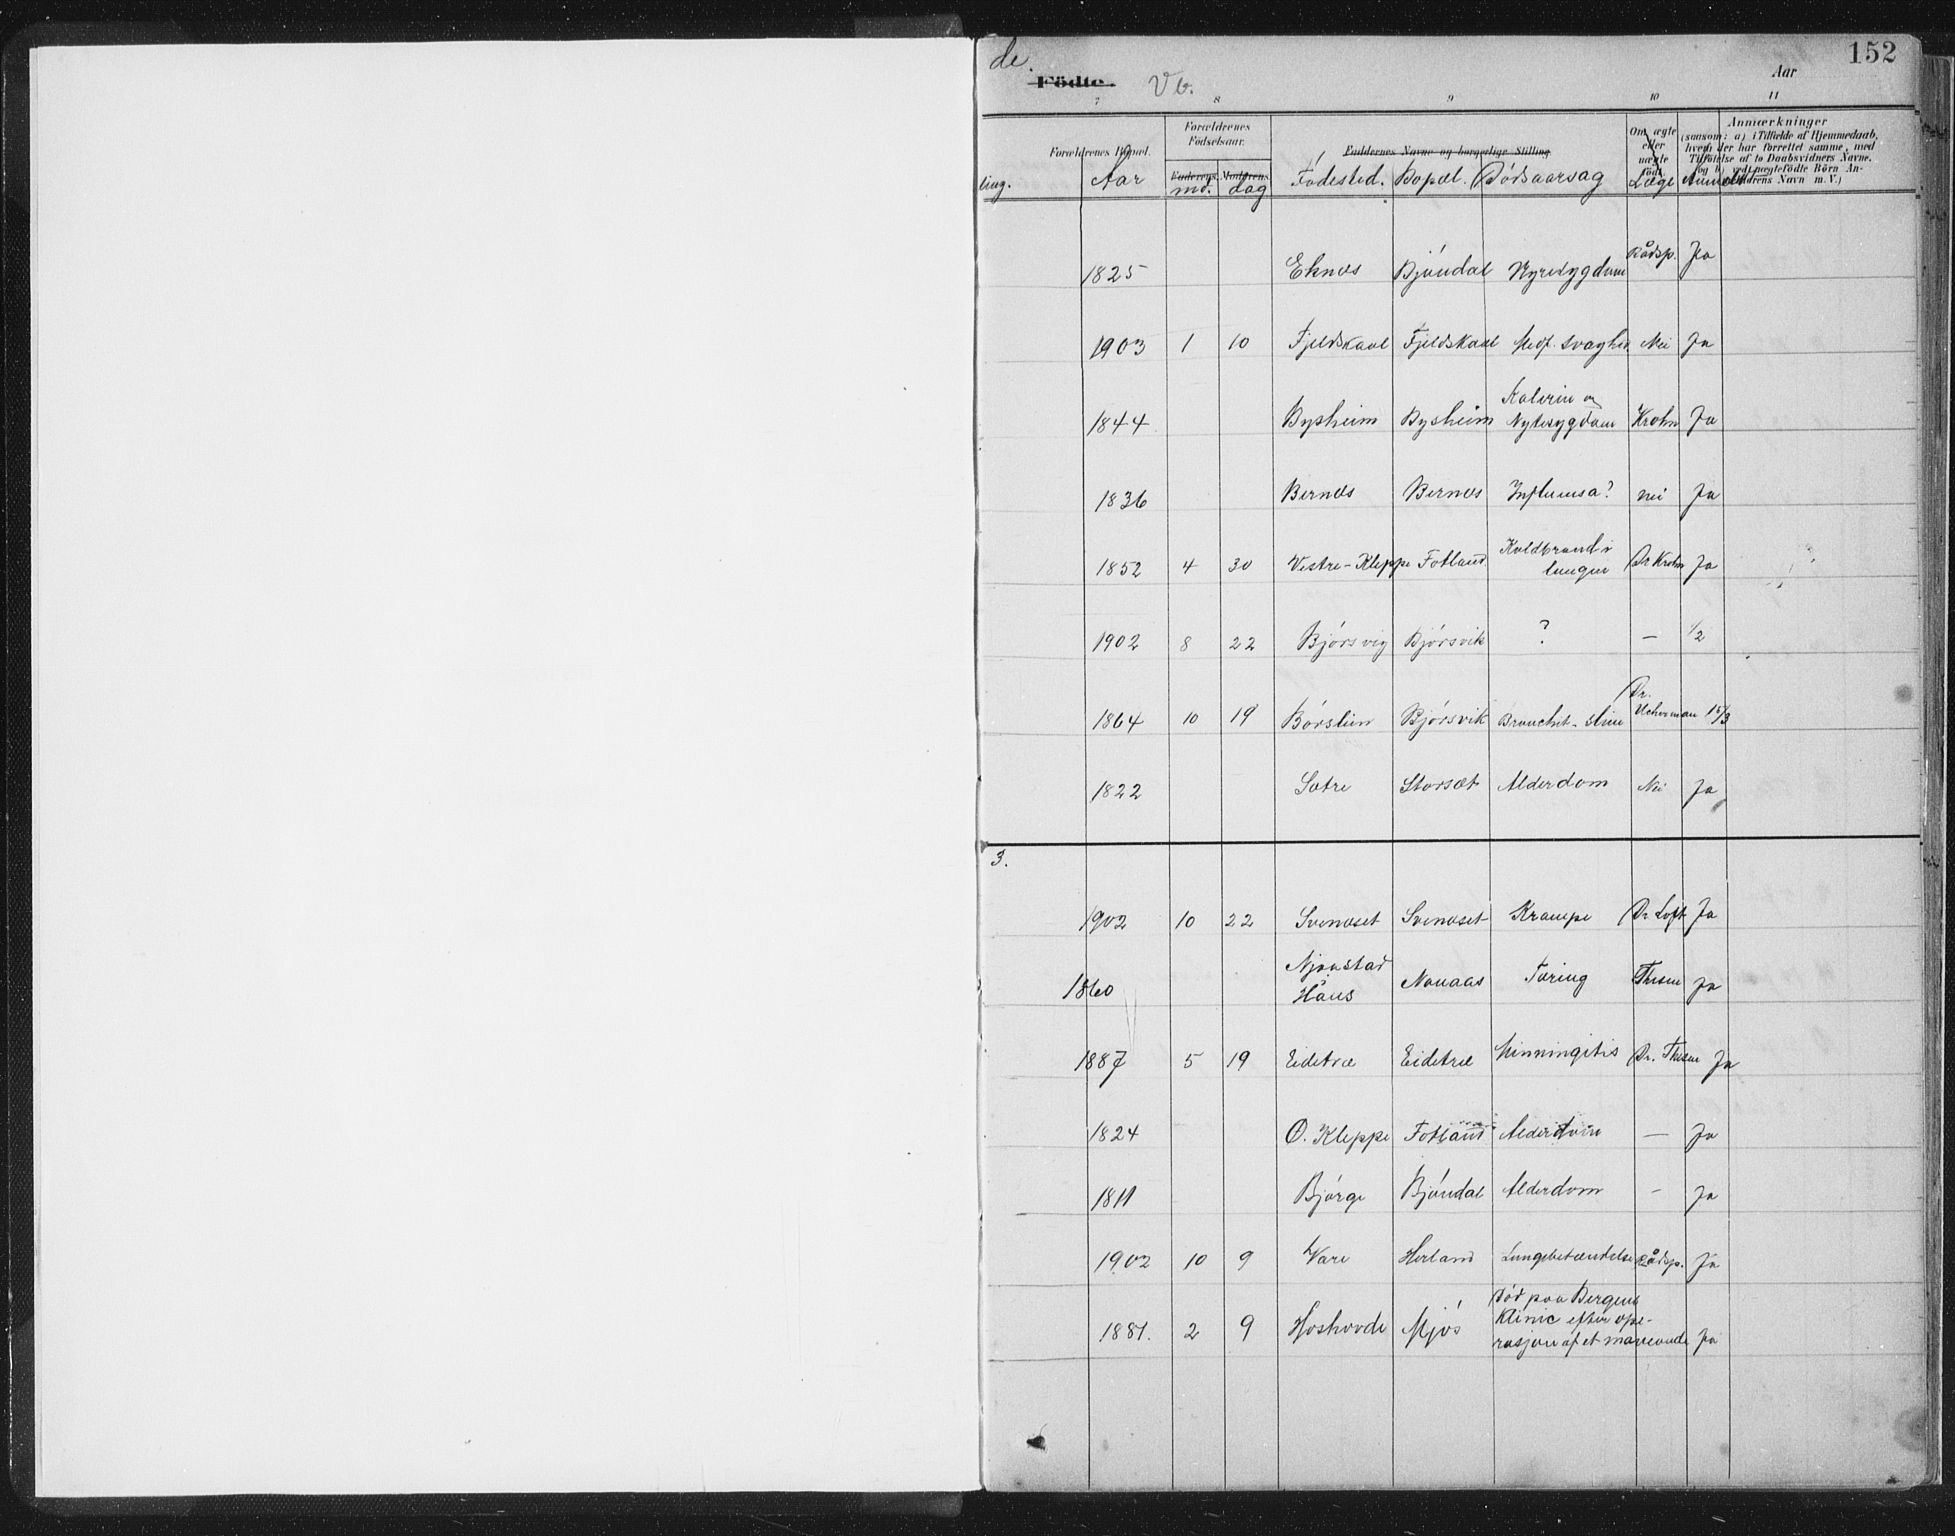 152
de.
Födte. Vb.
Aar
7 8 9 10 11
Forældrenes Bopæl.
Forældrenes Födselsaar.
Faderens. Moderens.
Faddernes Navne og borgerlige Stilling
Om ægte eller uægte født.
Anmærkninger
(saasom: a) i Tilfælde af Hjemmedaab,
hvem der har forrettet samme, med
Tilföielse af to Daabsvidners Navne.
og b) ved uægtefödte Börn An-
Navn m. V.)
ling. Aar md. dag Födested. Bopæl. Dödsaarsag Læge Anmeldt
1825 Eknæs Bjöndal Nyresygdom Rådsp. Ja
1903 1 10 Fjeldskaal Fjeldskaal Medf. svaghed Nei Ja
1844 Bysheim Bysheim Kolerin og Nyresygdom Krohn Ja
1836 Bernæs Bernæs Influensa? nei Ja
1852 4 30 Vestre-Kleppe Fotland Koldbrand i lungen Dr Krohn Ja
1902 8 22 Bjórsvig Bjórsvik ? — 1/2
1864 10 19 Bjórsvik Dr. Ucherman 15/3
1822 Sætre Storsæt Alderdom Nei Ja
3.
1902 10 22 Svenæset Svenæset Krampe Dr Loft Ja
1860 Njaastad Håus Nonaas Tæring Thesen Ja
1887 5 19 Eidetræ Eidetræ Minningitis Dr. Thesen Ja
1824 O. Kleppe Fotland Alderdom — Ja
1811 Bjórge Bjóndal Alderdom — Ja
1902 10 9 Vare Herland Lungebetændelse Rådsp. Ja
1881. 2 9 Hoshovde Mjós Död paa Bergens
Klinic efter ope-
rasjon af et maveonde Ja